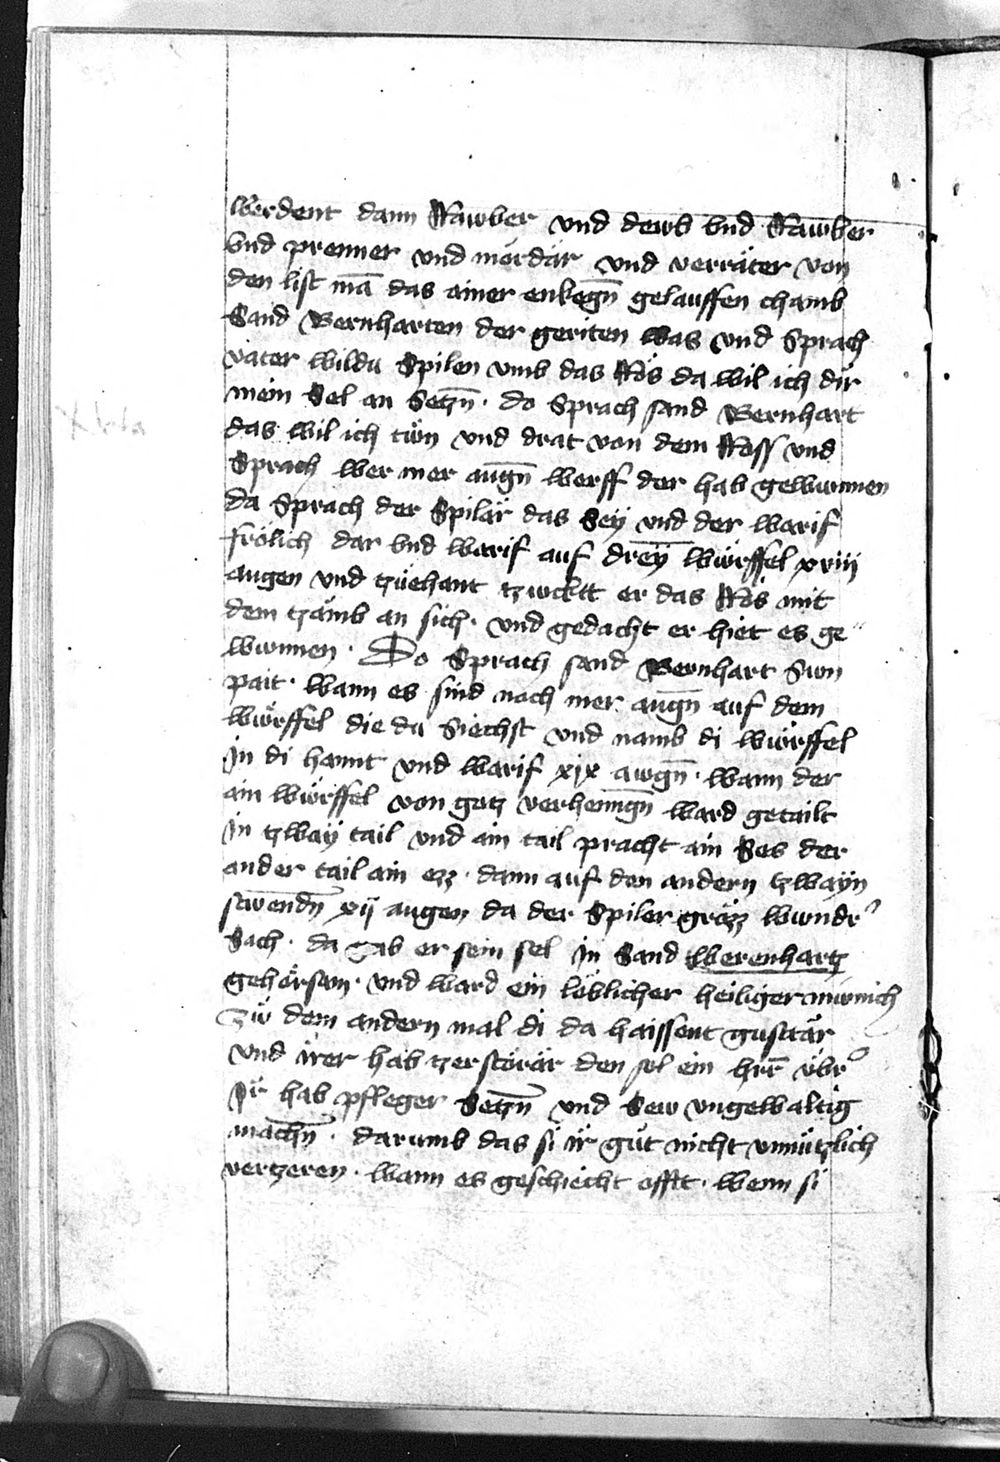 werdent dann Rawber und dewb vnd Rawber
vnd prenner und mördär und verräter von
den list mā das ainer enkegn̄ gelauffen chamb
Sand Bernharten der geriten was und Sprach
väter wildu Spilen vmb das Ros da wil ich dir
mein Sel an Setzn̄ · do Sprach sand Bernhart
das wil ich tün und drat von dem Ross und
Sprach wer mer augn̄ werff der hab gewunnen
da Sprach der Spilär das Seÿ und der warif
frölich dar vnd warif auf dreÿ würffel xviij
augen und tzuehant tzwcktt er das Ros mit
dem tzämb an sich · und gedacht er hiet es ge
wunnen · Do Sprach sand Bernhart Sun
pait · wann es sind noch mer augn̄ auf dem
würffel die du Siechst und namb di würffel
In di hannt und warif xix awgn̄ · wann der
ain würffel von gotz verhenngn̄ ward getailt
In tzwaÿ tail und ain tail pracht ain Ses der
ander tail ain ezz · dann auf den andern tzwaÿn
xij augen da der Spiler gröz wundr
Sach · da gab er sein sel In Sand Werenhartz
gehörsam · und ward ein löblicher heiliger münich
Zü dem andern mal di da haissent gustär
und irer hab tzerstörär den sol ein hrr̄ übr
Ir hab pfleger Setzn̄ und Sew ungewaltig
machn̄ · darumb das si ir güt nicht vnnützlich
vertzeren · wann es geschiecht offtt · wenn si